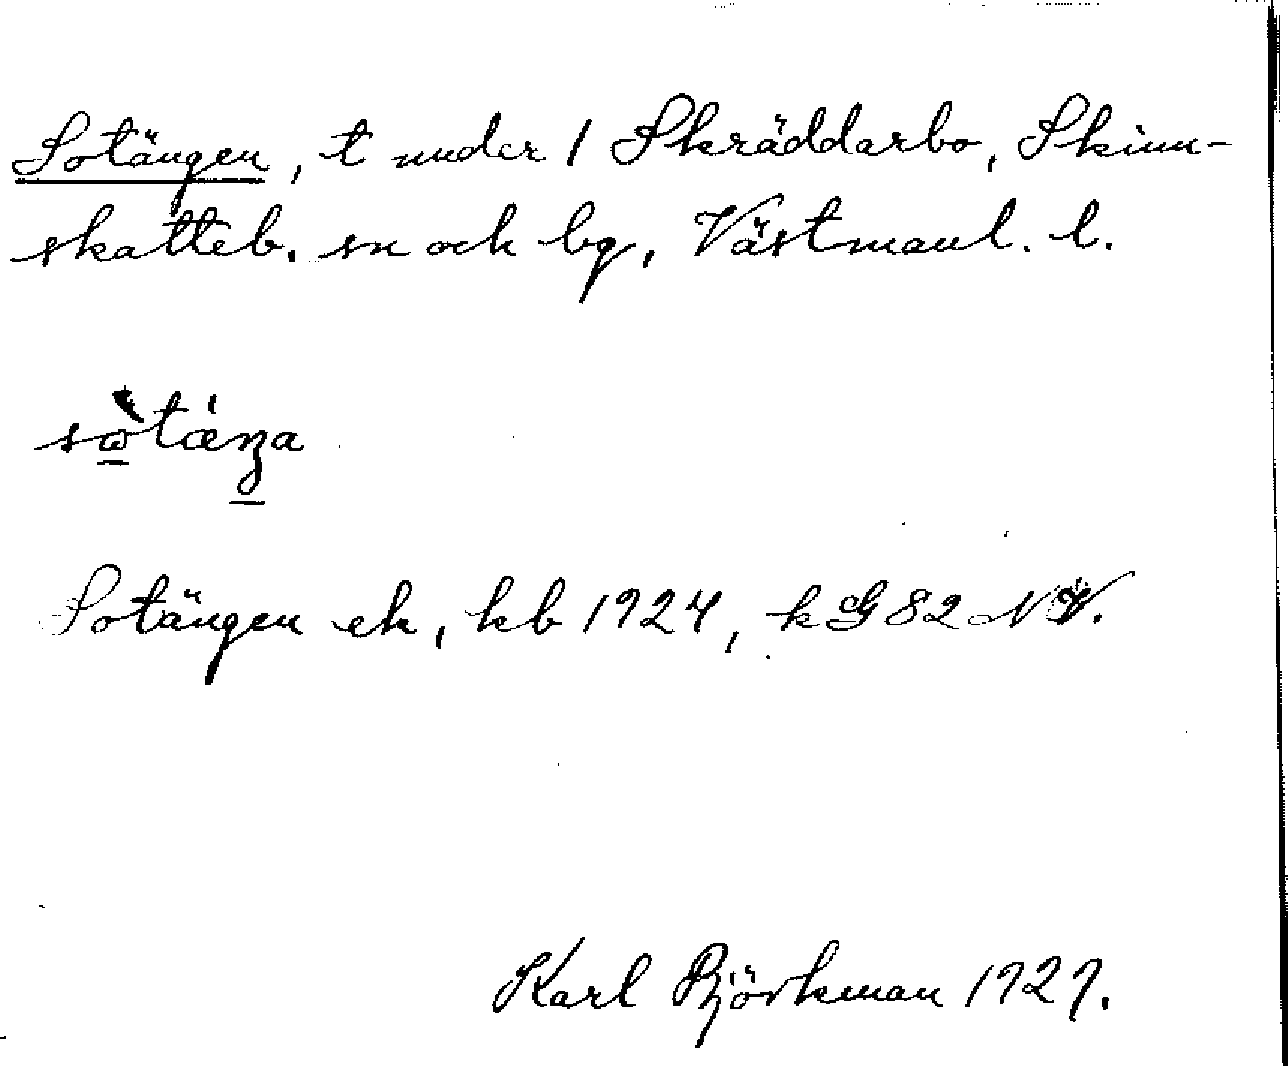 Sotängen, t under 1 Skräddarbo, Skinn-
skatteb. sn och bg, Västmanl. l.
sὼtæ̀ŋa
Sotängen ek, kb 1924, k G 82 NV.
Karl Björkman 1927.